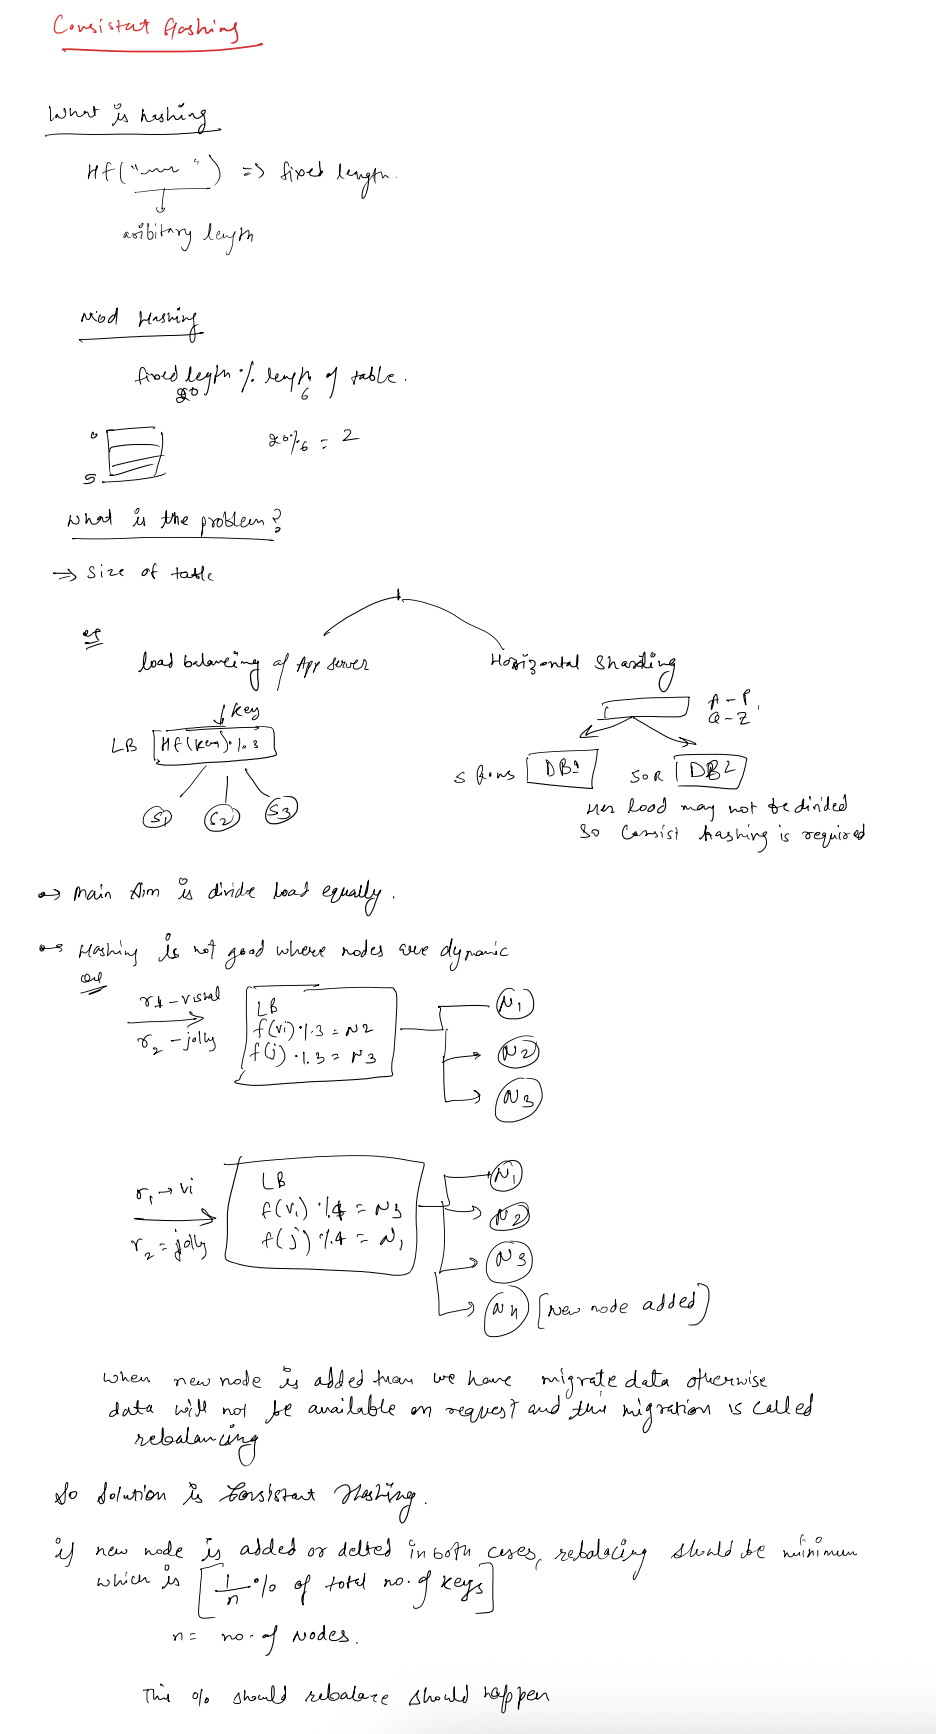 Consistent Hashing
What is hashing
Hf("~~~") => fixed length.
aribitary length
Mod Hashing
fixed legth % length of table.
20 6
0
5
20%6 = 2
What is the problem?
=> Size of table
eg
load balancing of App server
Horizontal Sharding
key
LB Hf(key)%3
S1 S2 S3
A-P.
Q-Z
5 Rows DB1
50R DB2
Her load may not be divided
So Consist hashing is required
=> Main Aim is divide load equally.
=> Hashing is not good where nodes are dynamic
r1 - vishal
r2 - jolly
LB
f(vi)%3 = N2
f(j)%3 = N3
N1
N2
N3
r1 → vi
r2 = jolly
LB
f(vi)%4 = N3
f(j)%4 = N1
N1
N2
N3
N4 [New node added]
when new node is added than we have migrate data otherwise
data will not be available on request and this migration is called
rebalancing
So Solution is Consistant Hashing.
if new node is added or delted in both cases, rebalacing should be minimum
which is [1/n % of total no. of keys]
n = no. of Nodes.
This % should rebalace should happen